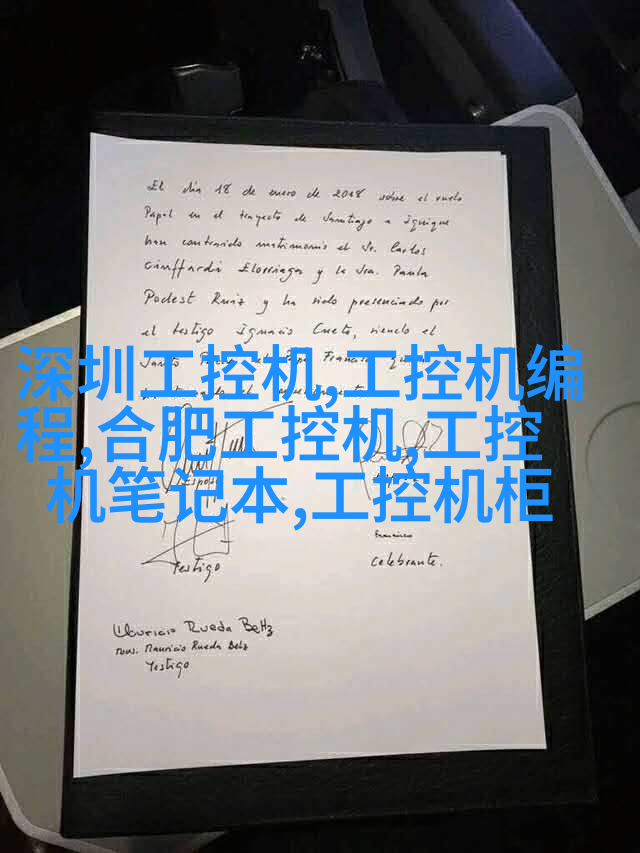 El día 18 de enero de 2018 sobre el vuelo
Papal en el trayecto de Santiago a Iquique
han contraido matrimonio el Sr. Carlos
Ciuffardi Elorriaga y la Sra. Paula
Podest Ruiz y ha sido presenciado por
el testigo Ignacio Cueto, siendo el
深圳工控机,工控机编
程,合肥工控机,工控
机笔记本,工控机柜
Santo Padre Papa Francisco
Esposo
Testigo
Francisco
Celebrante.
Mauricio Rueda Beltz
Mons. Mauricio Rueda Beltz
Testigo